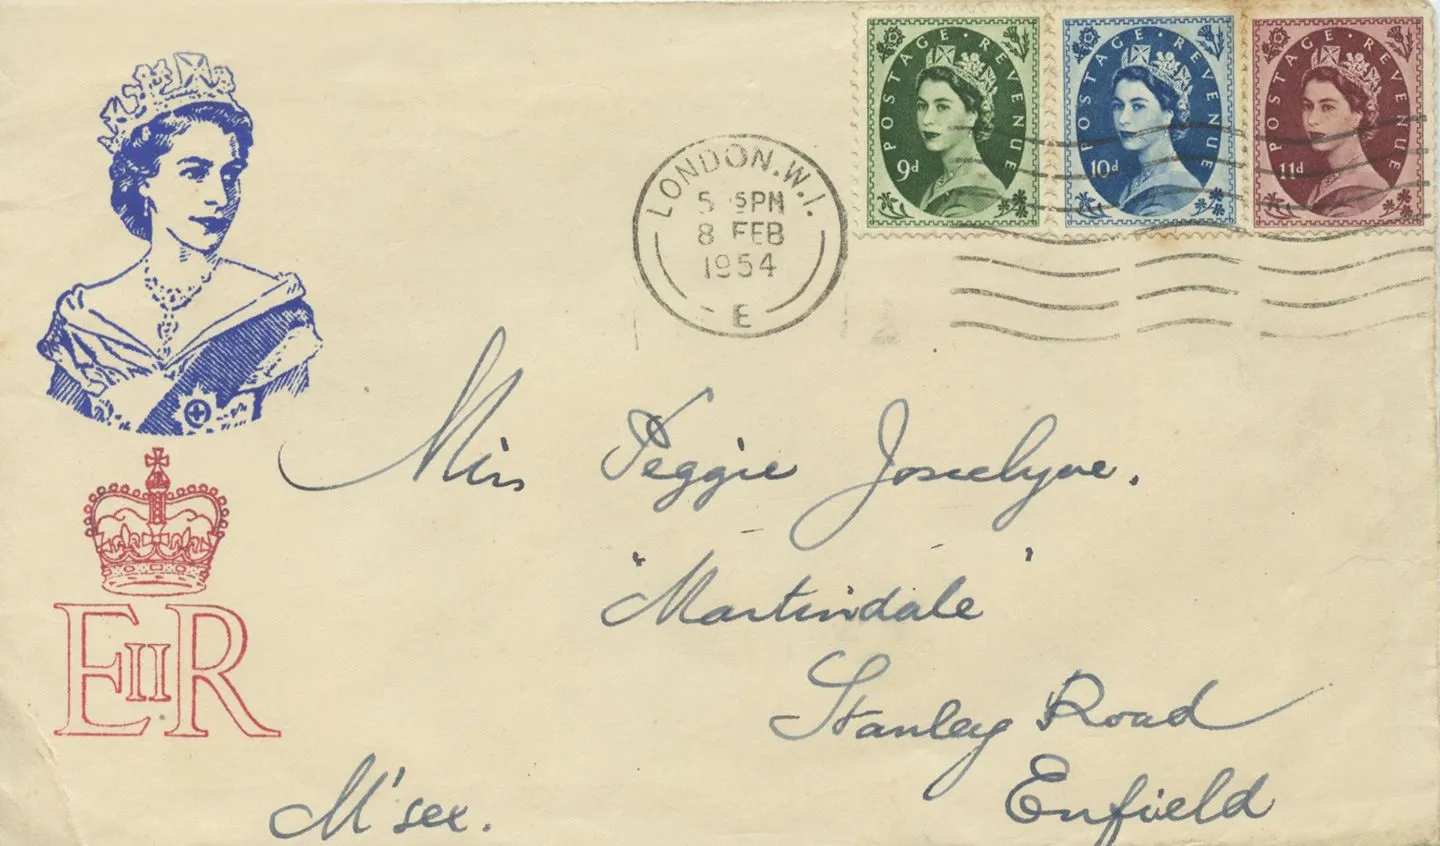 POSTAGE·REVENUE
9d
POSTAGE·REVENUE
10d
POSTAGE·REVENUE
11d
LONDON.W.1.
PM
8 FEB
1954
E
Miss Peggie Joscelyne.
"Martindale"
Stanley Road
Enfield
M'sex.
EIIR